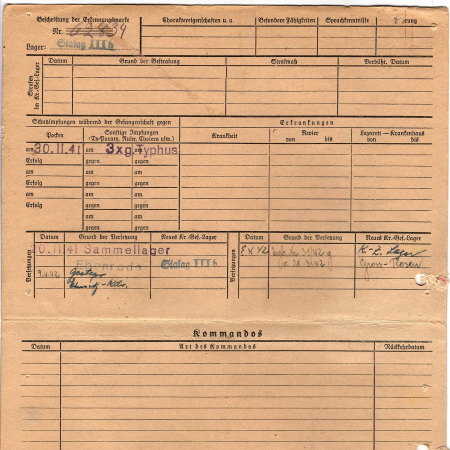 Beschriftung der Erkennungsmarke
Nr. 62834
Lager: Stalag IIIb
Charaktereigenschaften u. a.
Besondere Fähigkeiten
Sprachkenntnisse
Führung
Strafen im Kr.-Gef.-Lager
Datum
Grund der Bestrafung
Strafmaß
Verbüßt, Datum
Schutzimpfungen während der Gefangenschaft gegen
Erkrankungen
Pocken
Sonstige Impfungen
(Ty-Paraty, Ruhr, Cholera usw.)
Krankheit
Revier
von bis
Lazarett – Krankenhaus
von bis
am 30.11.41
am 3xg. gegen Typhus
Erfolg
gegen gegen
am
am am
Erfolg
gegen gegen
am
am am
Erfolg
gegen gegen
am am
gegen gegen
Versetzungen
Datum
Grund der Versetzung
Neues Kr.-Gef.-Lager
Versetzungen
Datum
Grund der Versetzung
Neues Kr.-Gef.-Lager
10.11.41 Sammellager
Ebenrode
Stalag IIIb
9.4.42
Gestapo
K.-Z. Lager
Gross-Rosen
Kommandos
Datum
Art des Kommandos
Rückkehrdatum